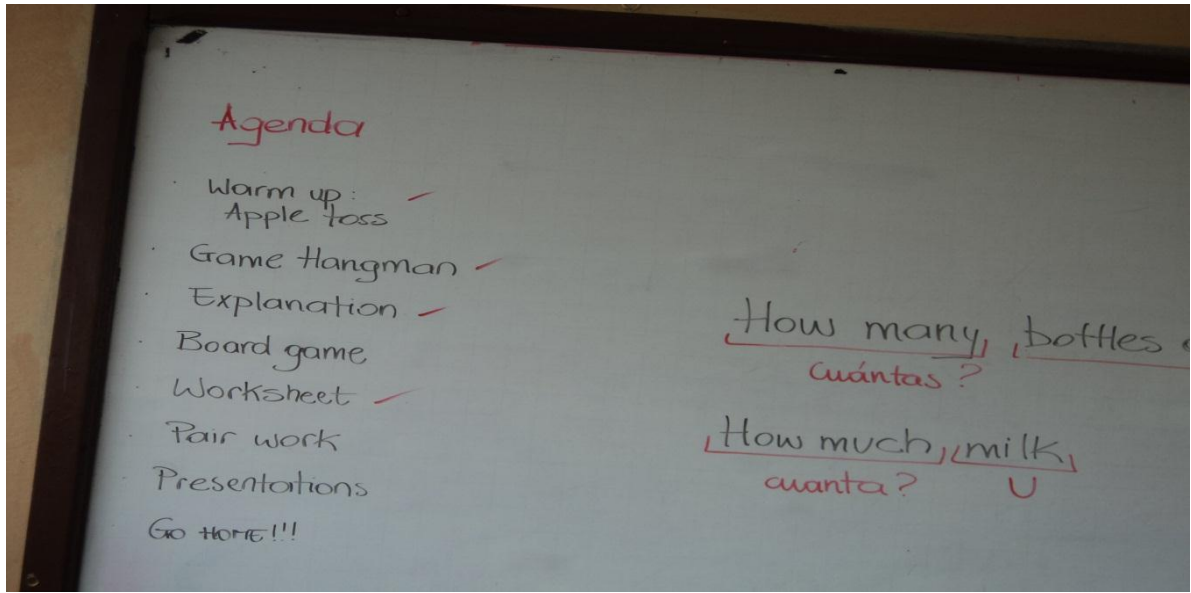 Agenda
Warm up:
Apple toss
Game Hangman
Explanation
Board game
Worksheet
Pair work
Presentations
GO HOME!!!
How many, bottles
cuántas?
How much, milk
cuanta? U